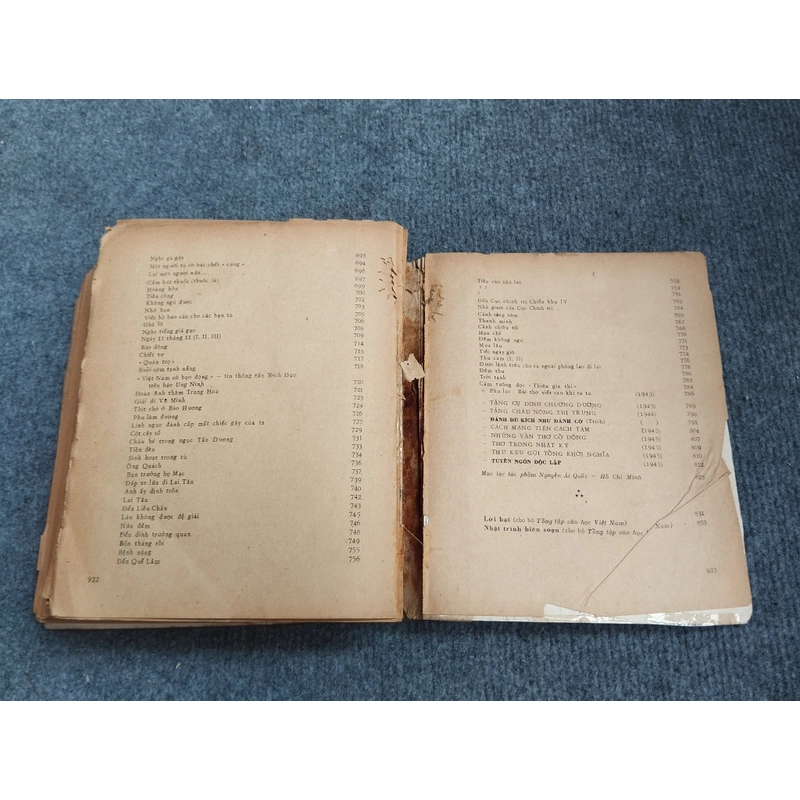 Nghe gà gáy 693
Một người tù cờ bạc chết « cứng » 694
Lại một người nữa... 696
Cấm hút thuốc (thuốc lá) 697
Hoàng hôn 699
Tiền công 700
Không ngủ được 702
Nhớ bạn 703
Viết hộ báo cáo cho các bạn tù 705
Ghẻ lở 708
Nghe tiếng giã gạo 709
Ngày 11 tháng 11 (I, II, III) 714
Báo động 715
Chiết tự 717
« Quán trọ » 718
Buổi sớm tạnh nắng
« Việt Nam có bạo động » — tin thông tấn Xích Đạo
trên báo Ung Ninh 720
Đoàn Anh thăm Trung Hoa 721
Giải đi Vũ Minh
Thịt chó ở Bảo Hương
Phu làm đường
Lính ngục đánh cắp mất chiếc gậy của ta
Cột cây số
Cháu bé trong ngục Tân Dương
Tiền đèn
Sinh hoạt trong tù 736
Ông Quách 737
Ban trưởng họ Mạc 738
Đáp xe lửa đi Lai Tân 739
Anh ấy định trốn 740
Lai Tân 742
Đến Liễu Châu 743
Lâu không được đệ giải 745
Nửa đêm 746
Đến dinh trưởng quan 748
Bốn tháng rồi 749
Bệnh nặng 755
Đến Quế Lâm 756
922
Tiền vào nhà lao 758
? ! 759
? 761
Đến Cục chính trị Chiến khu IV 762
Nhà giam của Cục Chính trị
Cảnh sáng sớm
Thanh minh
Cảnh chiều tối 768
Hạn chế 770
Đêm không ngủ 771
Mưa lâu 774
Tiếc ngày giờ 775
Thu cảm (I, II) 778
Được lệnh trên cho ra ngoài phòng lao đi lại
Đêm thu
Trời tạnh
Cảm tưởng đọc « Thiên gia thi » 784
+ Phụ lục: Bài thơ viết sau khi ra tù (1943) 786
- TẶNG CỤ ĐINH CHƯƠNG DƯƠNG (1943) 789
- TẶNG CHÁU NÔNG THỊ TRƯNG (1944) 790
- ĐÁNH DU KÍCH NHƯ ĐÁNH CỜ (Trích) 793
- CÁCH MẠNG TIẾN CÁCH TÁM (1945) 804
- NHỮNG VẦN THƠ CỔ ĐỘNG (1945) 807
- THƠ TRONG NHẬT KÝ (1945) 809
- THƯ KÊU GỌI TỔNG KHỞI NGHĨA (1945) 810
- TUYÊN NGÔN ĐỘC LẬP (1945) 812
Mục lục tác phẩm Nguyễn Ái Quốc — Hồ Chí Minh
Lời bạt (cho bộ Tổng tập văn học Việt Nam) 831
Nhật trình biên soạn (cho bộ Tổng tập văn học Nam) 833
923